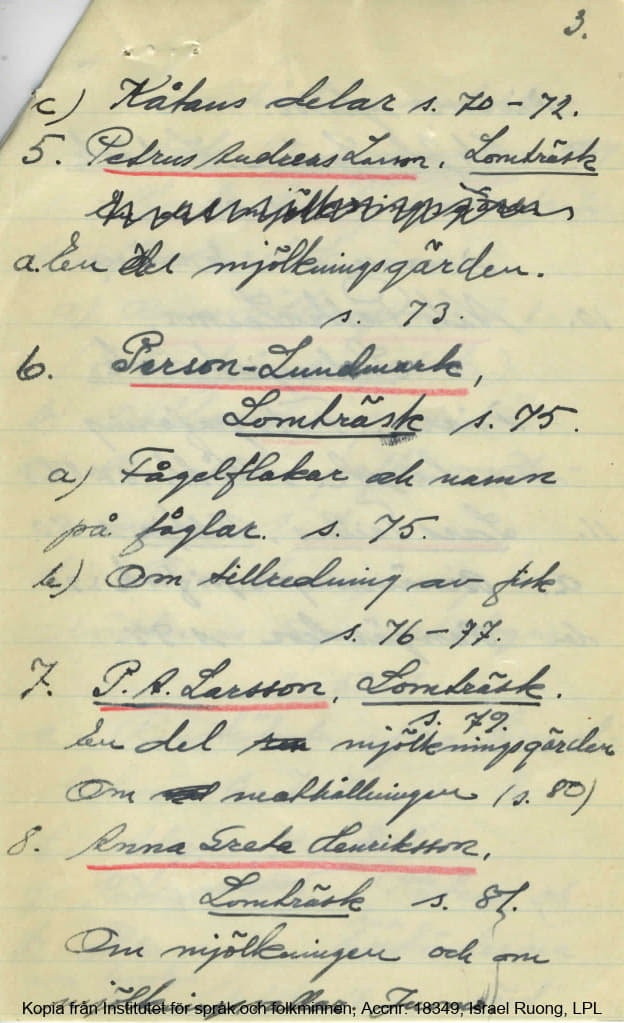 3.
c) Kåtans delar s. 70 – 72.
5. Petrus Andreas Larson, Lomträsk
a. En del mjölkningsgärden.
s. 73.
6. Person-Lundmark,
Lomträsk s. 75.
a) Fågelflakar och namn
på fåglar. s. 75.
b) Om tillredning av fisk
s. 76 – 77.
7. P. A. Larsson, Lomträsk.
s. 79.
En del mjölkningsgärden
Om mathållningen (s. 80)
8. Anna Greta Henriksson,
Lomträsk s. 81.
Om mjölkningen och om
Kopia från Institutet för språk och folkminnen, Accnr. 18349, Israel Ruong, LPL